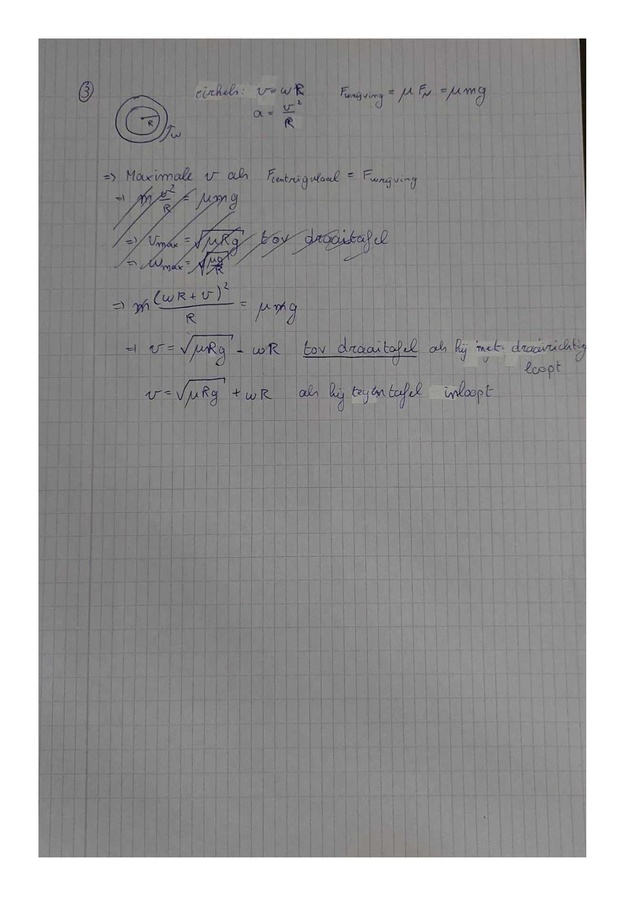 ③
cirkels: v = ωR   F_wrijving = μ F_N = μmg
a = v²/R
R
ω
=> Maximale v als F_centrifugaal = F_wrijving
=> m v²/R = μmg
=> v_max = √(μRg) tov draaitafel
=> ω_max = √(μg/R)
=> m (ωR + v)²/R = μmg
=> v = √(μRg) - ωR tov draaitafel als hij met draairichting
loopt
v = √(μRg) + ωR als hij tegen tafel inloopt